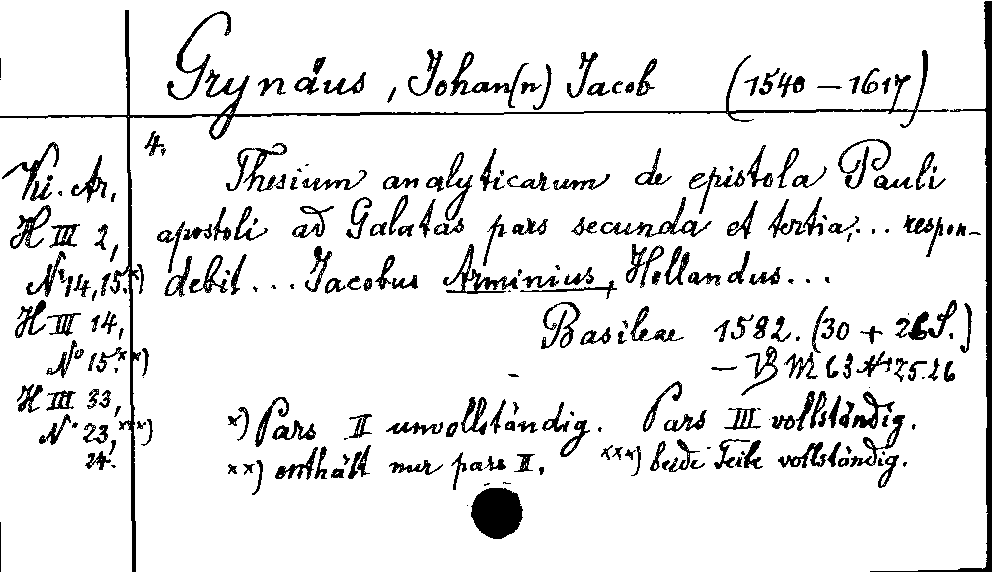 Grynäus, Johan(n) Jacob (1540 – 1617)
4.
Ki. Ar.
H III 2,
Nr 14, 15. x)
H III 14,
No 15. xx)
H III 33,
No 23, xxx)
24.
Thesium analyticarum de epistola Pauli
apostoli ad Galatas pars secunda et tertia,... respon-
debit ... Jacobus Arminius, Hollandus ...
Basileae 1582. (30 + 26 S.)
– VB M 63 Nr 25.26
x) Pars II unvollständig. Pars III vollständig.
xx) enthält nur pars II. xxx) beide Teile vollständig.